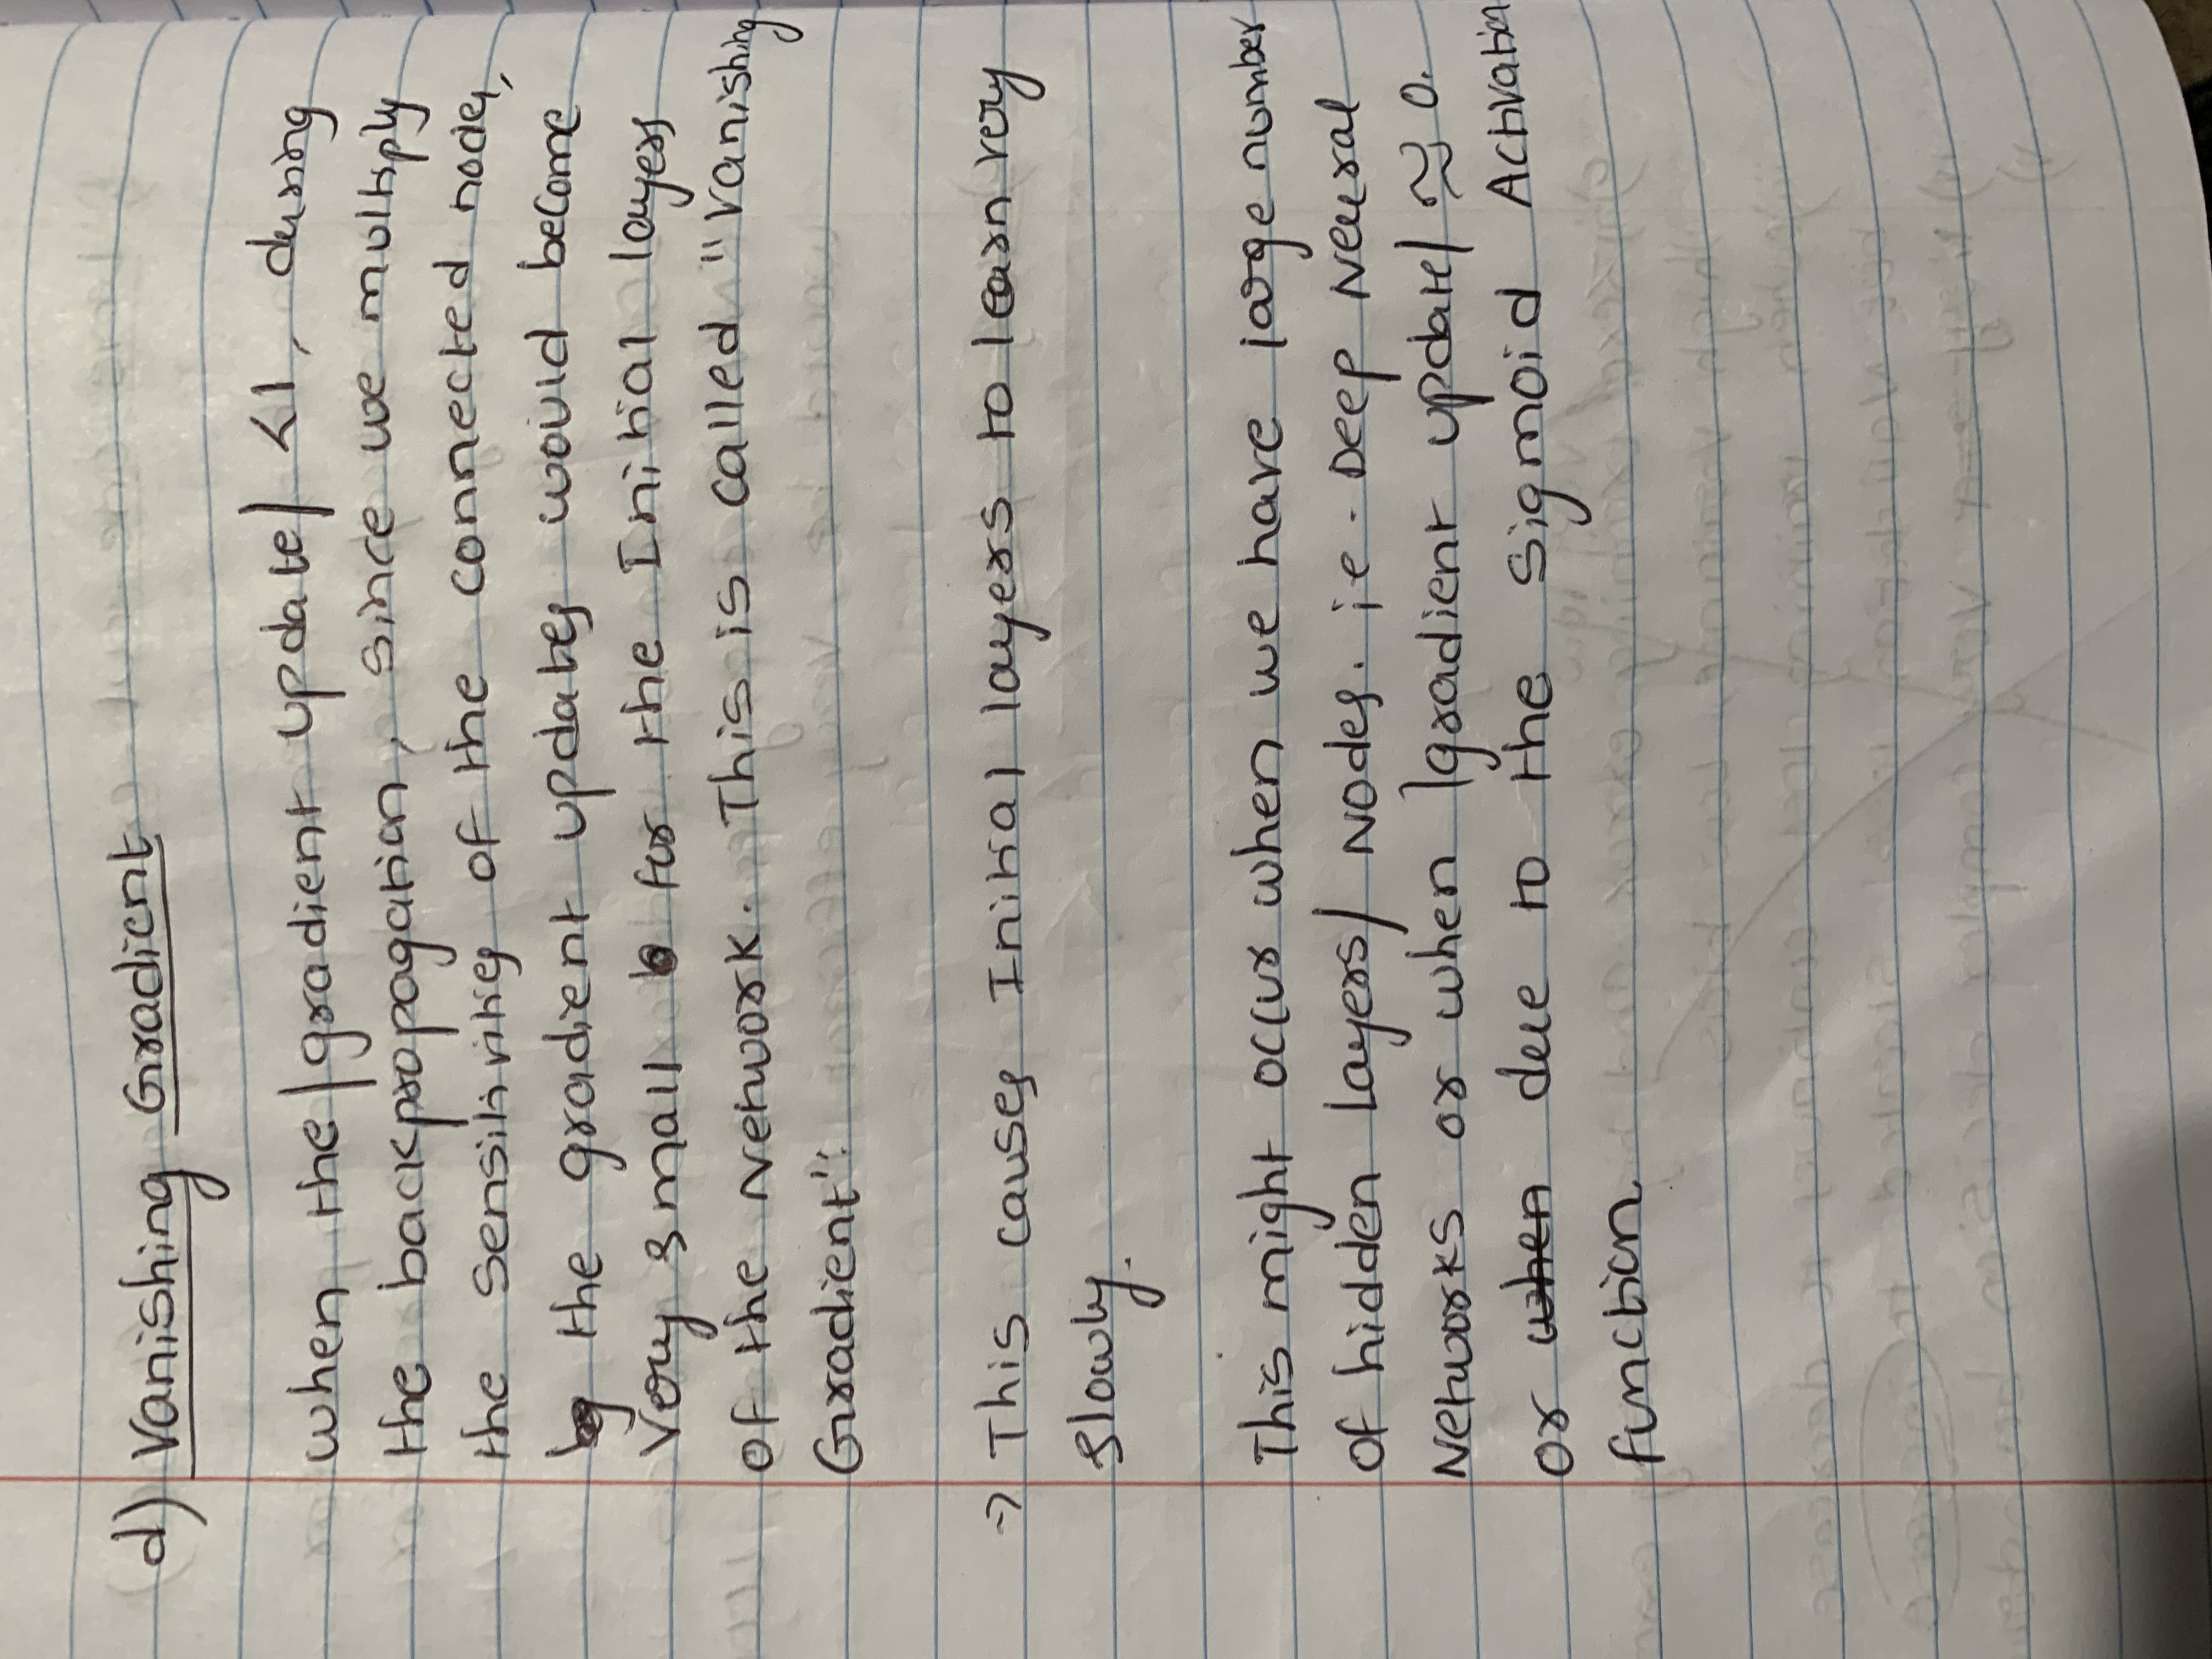 d) Vanishing Gradient
when the |gradient update| <1, during
the backpropagation, since we multiply
the sensitivities of the connected nodes,
the gradient updates would become
very small for the Initial layers
of the Network. This is called "Vanishing
Gradient".
→ This causes Initial layers to learn very
slowly.
This might occur when we have large number
of hidden layers/ Nodes. ie. Deep Neural
Networks or when |gradient update| ≈ 0.
or when due to the sigmoid Activation
function